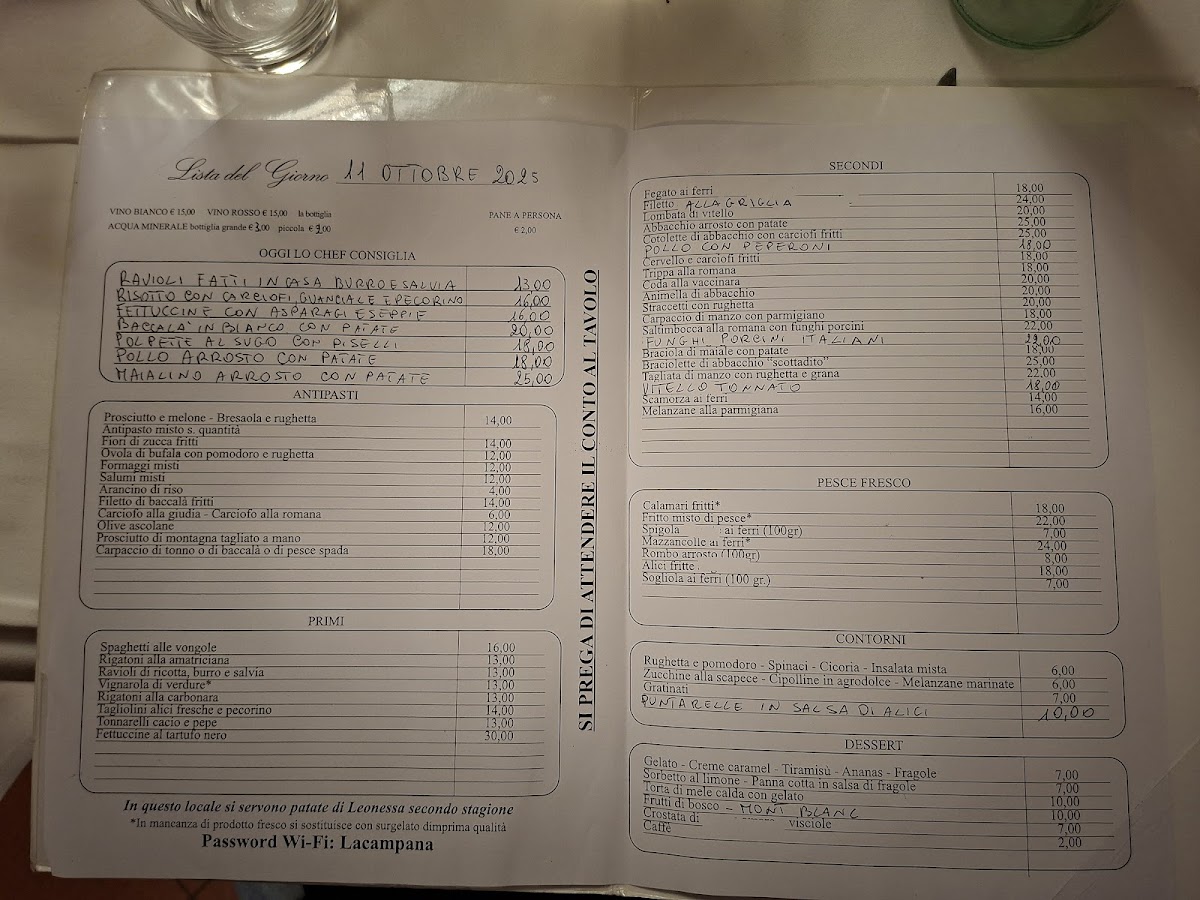 Lista del Giorno 11 OTTOBRE 2025
VINO BIANCO € 15,00 VINO ROSSO € 15,00 la bottiglia
PANE A PERSONA
ACQUA MINERALE bottiglia grande € 3,00 piccola €
€ 2,00
OGGI LO CHEF CONSIGLIA
RAVIOLI FATTI IN CASA BURRO E SALVIA 13,00
RISOTTO CON CARCIOFI, GUANCIALE E PECORINO 16,00
FETTUCCINE CON ASPARAGI E SEPPIE 16,00
BACCALA' IN BIANCO CON PATATE 20,00
POLPETTE AL SUGO CON PISELLI 18,00
POLLO ARROSTO CON PATATE 18,00
MAIALINO ARROSTO CON PATATE 25,00
ANTIPASTI
Prosciutto e melone - Bresaola e rughetta 14,00
Antipasto misto s. quantità
Fiori di zucca fritti 14,00
Ovola di bufala con pomodoro e rughetta 12,00
Formaggi misti 12,00
Salumi misti 12,00
Arancino di riso 4,00
Filetto di baccalà fritti 14,00
Carciofo alla giudia - Carciofo alla romana 6,00
Olive ascolane 12,00
Prosciutto di montagna tagliato a mano 12,00
Carpaccio di tonno o di baccalà o di pesce spada 18,00
PRIMI
Spaghetti alle vongole 16,00
Rigatoni alla amatriciana 13,00
Ravioli di ricotta, burro e salvia 13,00
Vignarola di verdure* 13,00
Rigatoni alla carbonara 13,00
Tagliolini alici fresche e pecorino 14,00
Tonnarelli cacio e pepe 13,00
Fettuccine al tartufo nero 30,00
In questo locale si servono patate di Leonessa secondo stagione
*In mancanza di prodotto fresco si sostituisce con surgelato dimprima qualità
Password Wi-Fi: Lacampana
SI PREGA DI ATTENDERE IL CONTO AL TAVOLO
SECONDI
Fegato ai ferri 18,00
Filetto ALLA GRIGLIA 24,00
Lombata di vitello 20,00
Abbacchio arrosto con patate 25,00
Cotolette di abbacchio con carciofi fritti 25,00
POLLO CON PEPERONI 18,00
Cervello e carciofi fritti 18,00
Trippa alla romana 18,00
Coda alla vaccinara 20,00
Animella di abbacchio 20,00
Straccetti con rughetta 20,00
Carpaccio di manzo con parmigiano 18,00
Saltimbocca alla romana con funghi porcini 22,00
FUNGHI PORCINI ITALIANI
Braciola di maiale con patate 18,00
Braciolette di abbacchio "scottadito" 25,00
Tagliata di manzo con rughetta e grana 22,00
VITELLO TONNATO 18,00
Scamorza ai ferri 14,00
Melanzane alla parmigiana 16,00
PESCE FRESCO
Calamari fritti* 18,00
Fritto misto di pesce* 22,00
Spigola ai ferri (100gr) 7,00
Mazzancolle ai ferri* 24,00
Rombo arrosto (100gr) 8,00
Alici fritte 18,00
Sogliola ai ferri (100 gr.) 7,00
CONTORNI
Rughetta e pomodoro - Spinaci - Cicoria - Insalata mista 6,00
Zucchine alla scapece - Cipolline in agrodolce - Melanzane marinate 6,00
Gratinati 7,00
PUNTARELLE IN SALSA DI ALICI 10,00
DESSERT
Gelato - Creme caramel - Tiramisù - Ananas - Fragole 7,00
Sorbetto al limone - Panna cotta in salsa di fragole 7,00
Torta di mele calda con gelato 10,00
Frutti di bosco - MONT BLANC 10,00
Crostata di visciole 7,00
Caffè 2,00